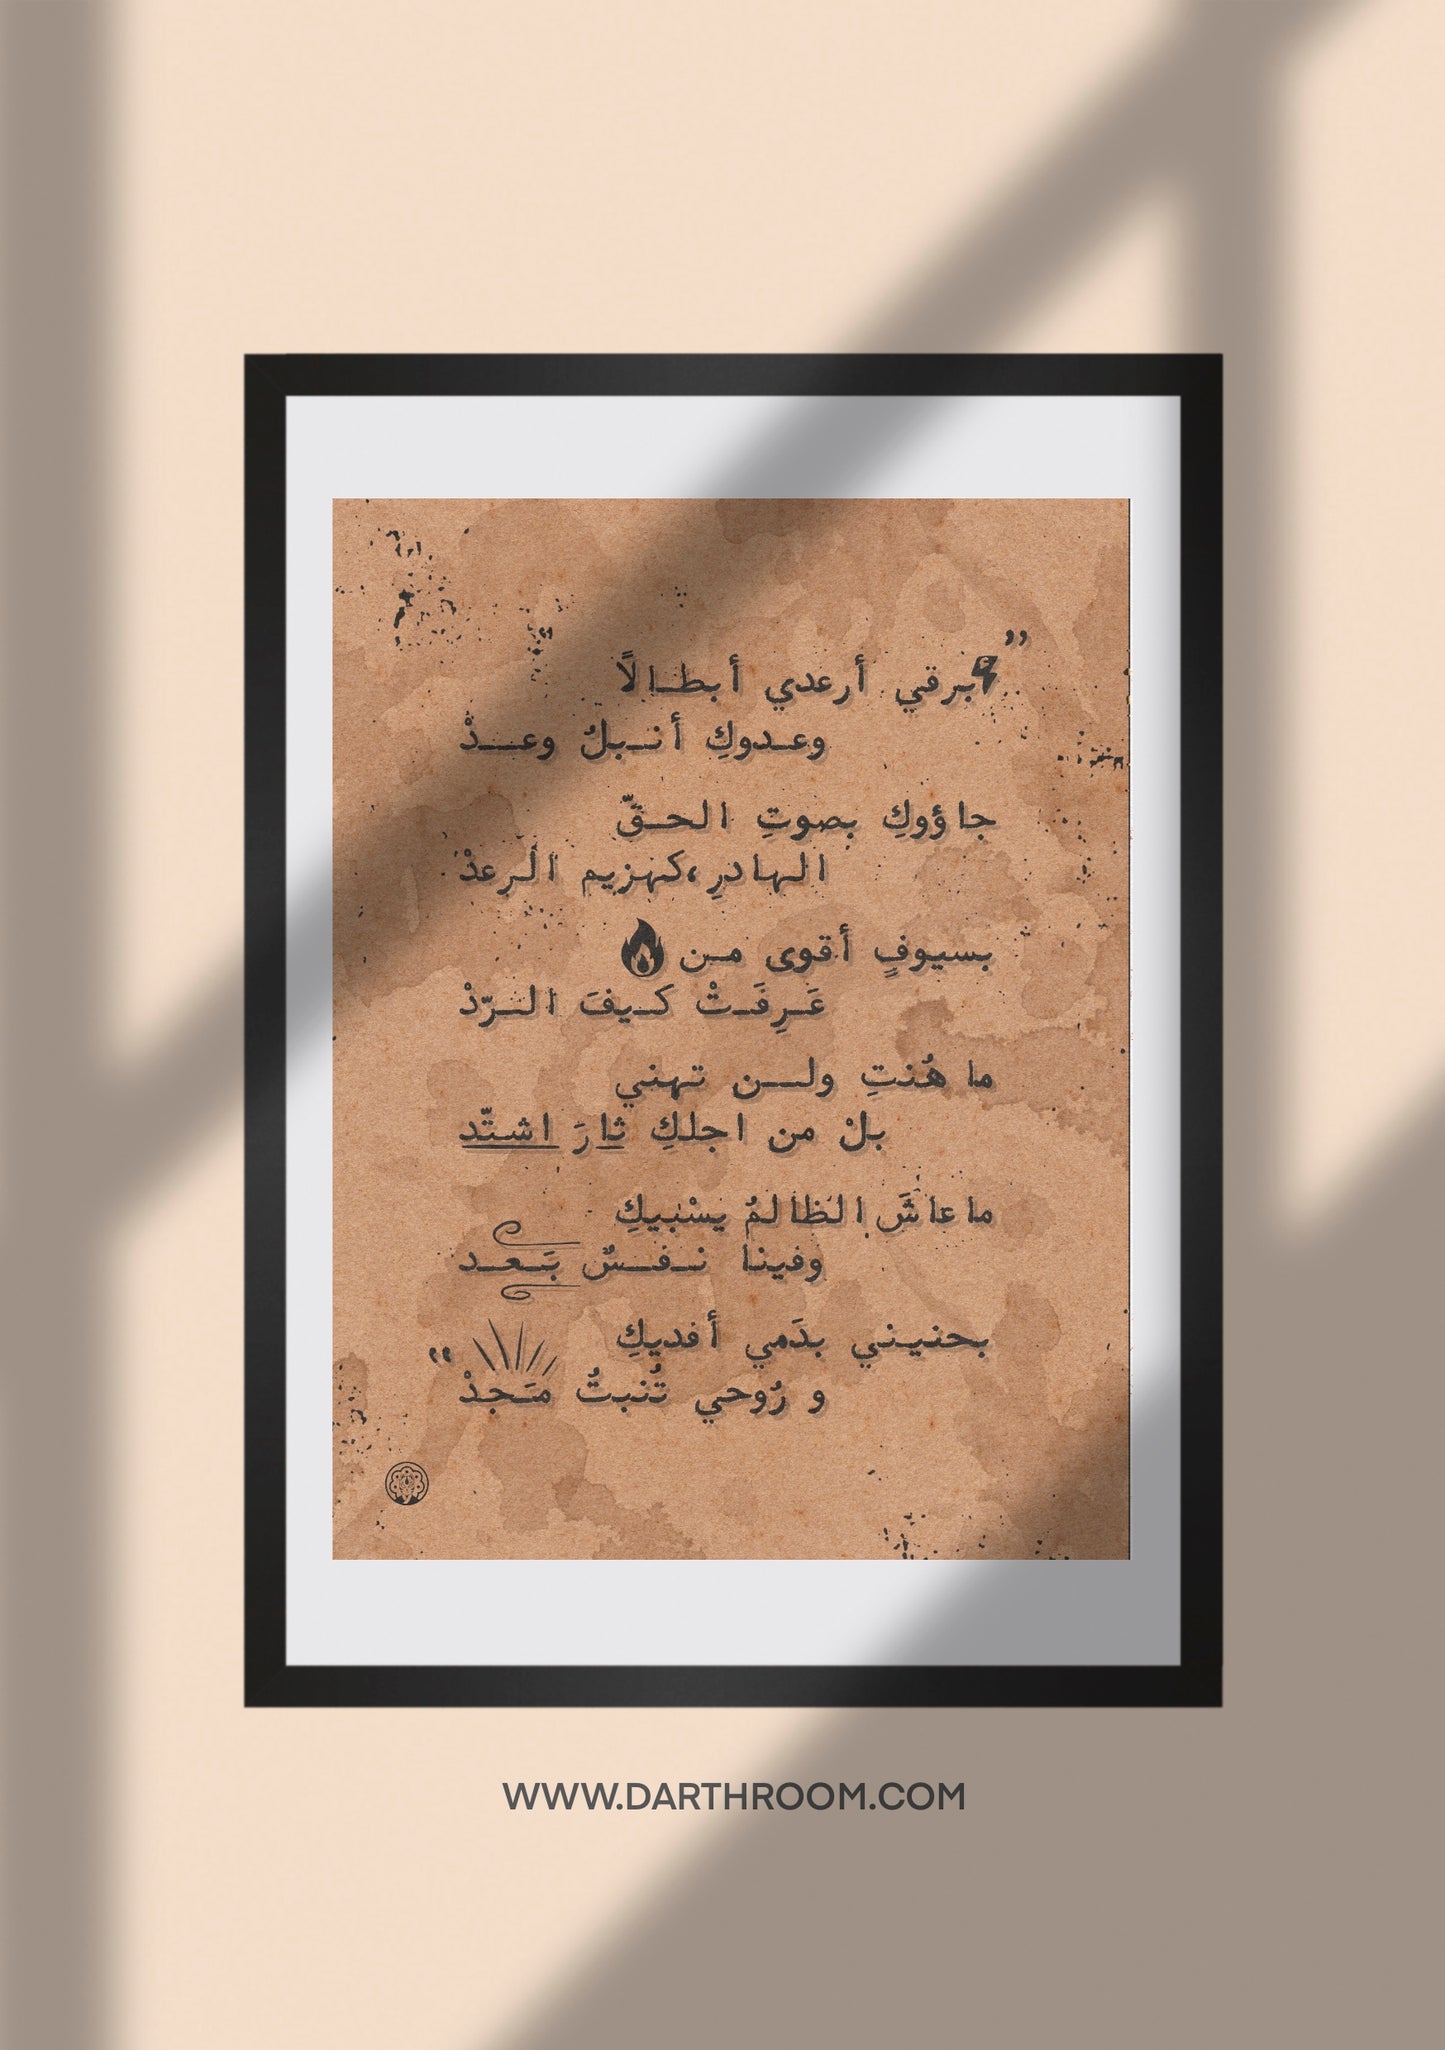 ”
أبرقي أرعدي أبطالًا
وعدوكِ أنبلُ وعدْ
جاؤوكِ بصوتِ الحقّ
الهادرِ،كهزيم الرعدْ
بسيوفٍ أقوى من
عَرِفَتْ كيفَ الرّدْ
ما هُنتِ ولن تهني
بلْ من اجلكِ ثارَ اشتّد
ما عاشَ الظالمُ يسْبيكِ
وفينا نفسٌ بَعد
بحنيني بدَمي أفديكِ
و رُوحي تُنبتُ مَجدْ
“
WWW.DARTHROOM.COM